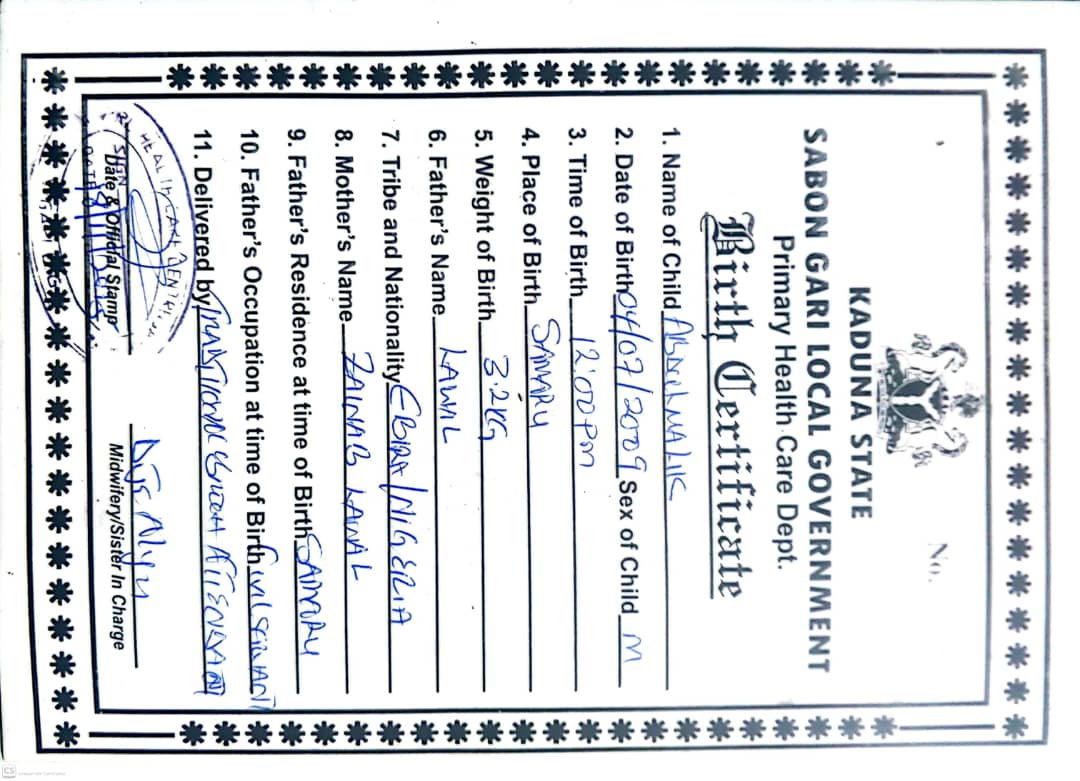 No.
KADUNA STATE
SABON GARI LOCAL GOVERNMENT
Primary Health Care Dept.
Birth Certificate
1. Name of Child Abdulmalik
2. Date of Birth 04/07/2009 Sex of Child M
3. Time of Birth 12:00pm
4. Place of Birth SAMARU
5. Weight of Birth 3.2KG
6. Father's Name LAWAL
7. Tribe and Nationality EBIRA/NIGERIA
8. Mother's Name ZAINAB LAWAL
9. Father's Residence at time of Birth SAMARU
10. Father's Occupation at time of Birth Civil SERVANT
11. Delivered by TRADITIONAL BIRTH ATTENDANT
HEALTH CARE
SIGN
DATE
Date & Official Stamp
Midwifery/Sister In Charge
CS